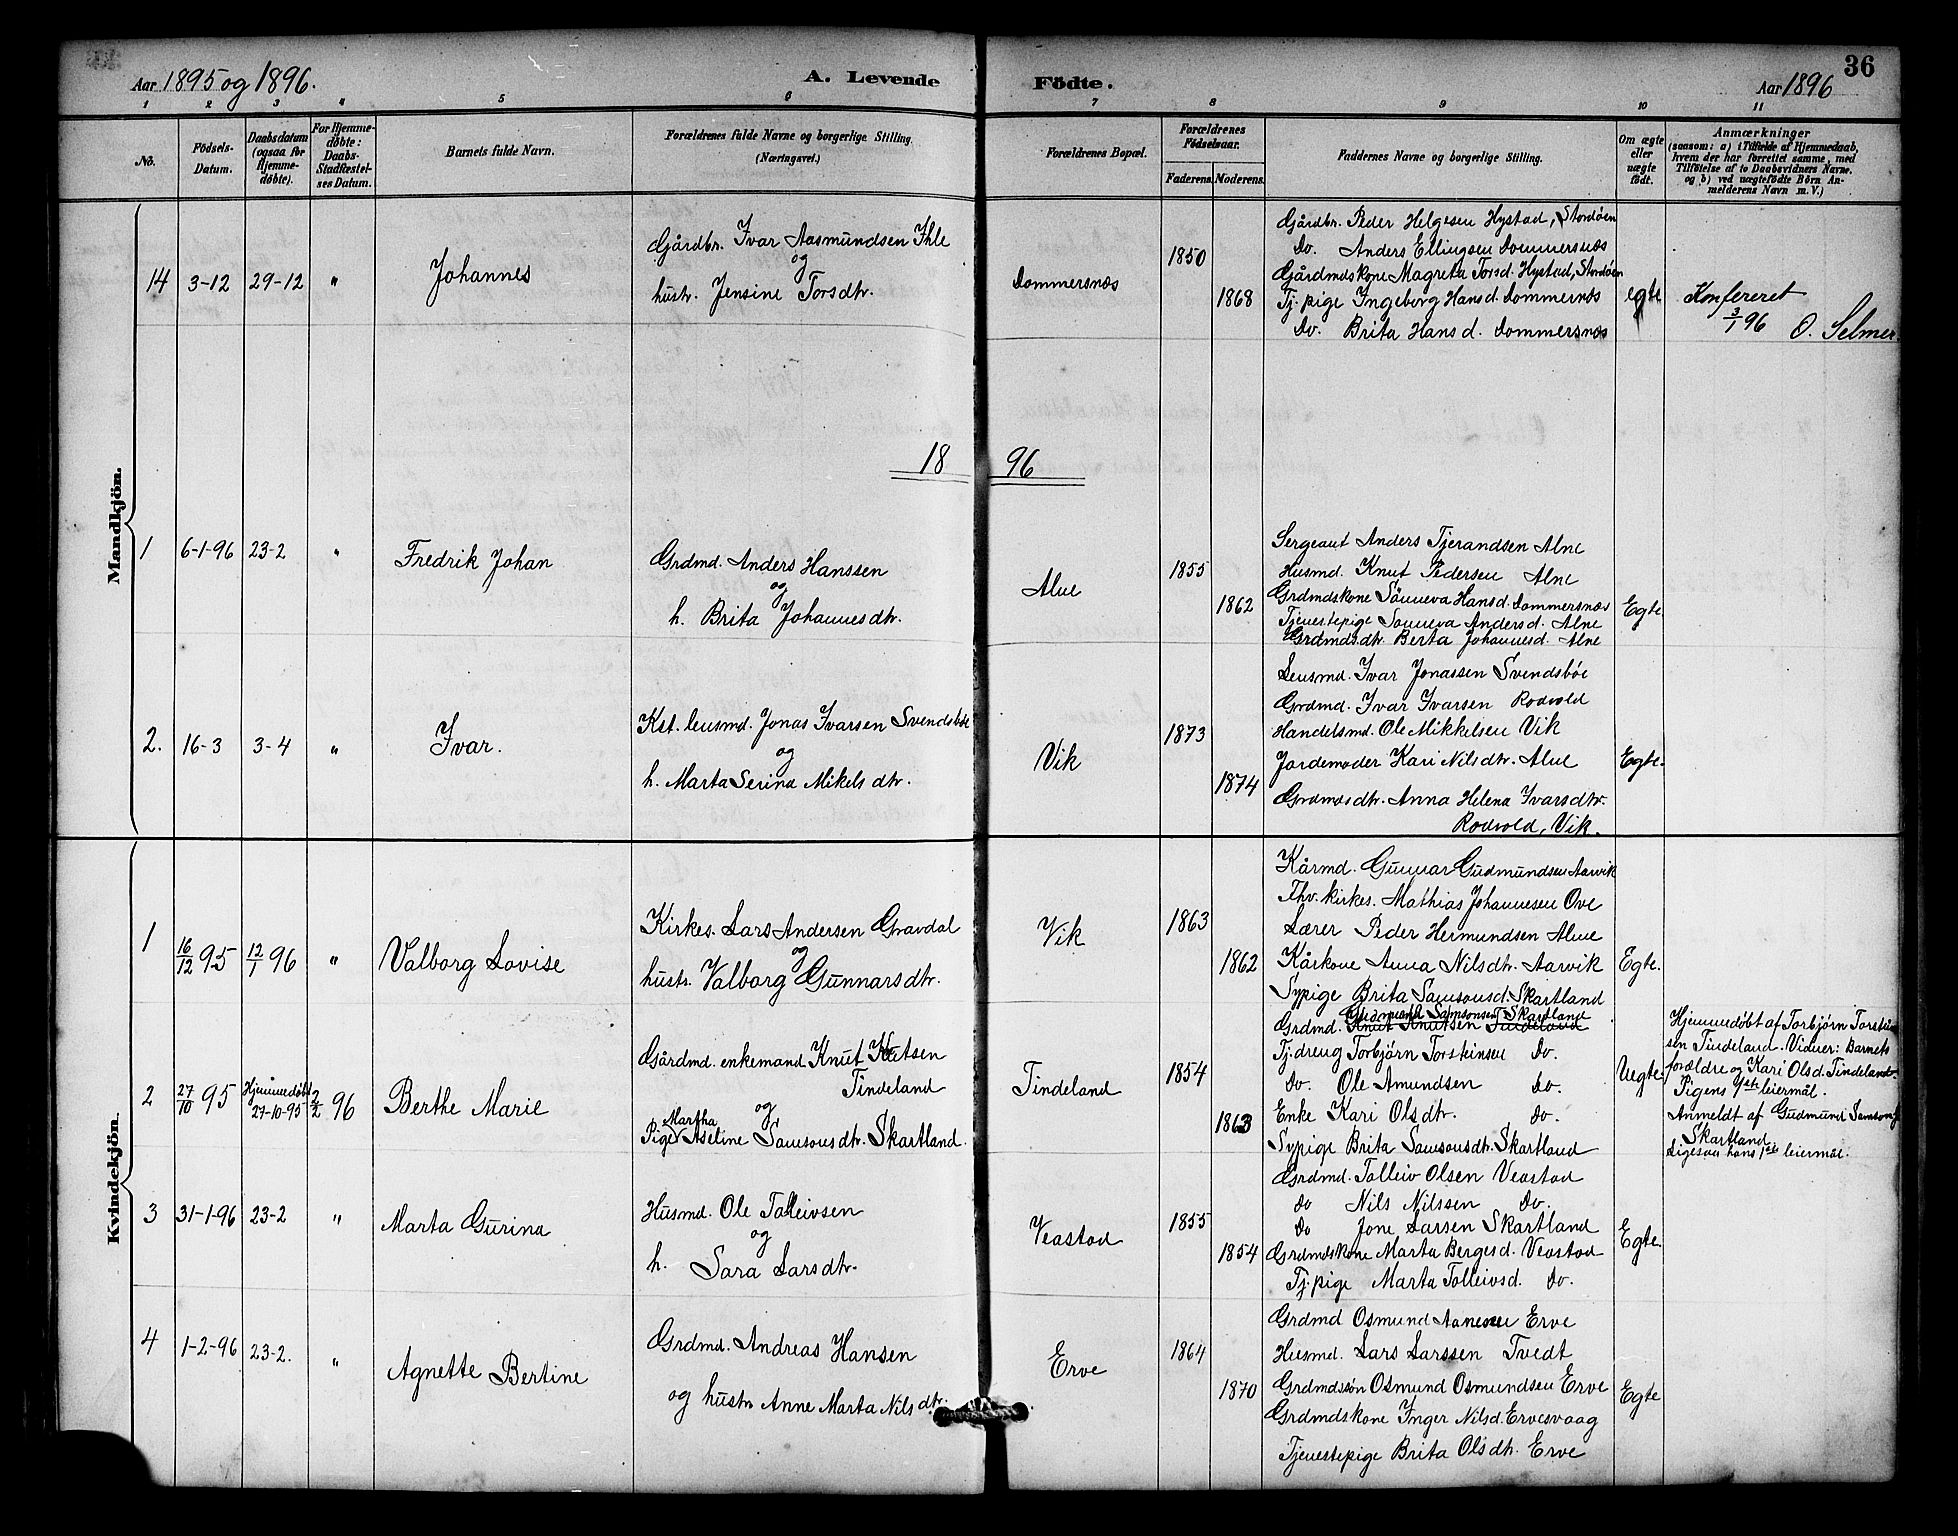 Aar 1895 og 1896.
A. Levende
Födte.
Aar 1896
36
1 2 3 4 5 6 7 8 9 10 11
No.
Födsels-
Datum.
Daabsdatum
(ogsaa for
Hjemme-
döbte).
For Hjemme-
döbte:
Daabs-
Stadfæstel-
ses Datum.
Barnets fulde Navn.
Forældrenes fulde Navne og borgerlige Stilling.
(Næringsvei.)
Forældrenes Bopæl.
Forældrenes
Födselsaar.
Faderens. Moderens.
Faddernes Navne og borgerlige Stilling.
Om ægte
eller
uægte
födt.
Anmærkninger
(saasom: a) i Tilfælde af Hjemmedaab,
hvem der har forrettet samme, med
Tilföielse af to Daabsvidners Navne.
og b) ved uægtefödte Börn An-
melderens Navn m. V.)
Mandkjön.
14 3-12 29-12 "
Johannes
Gårdbr. Ivar Aasmundsen Ihle
og
hustr. Jensine Torsdtr.
Dommersnæs
1850
1868
Gårdbr. Peder Helgesen Hystad, Stordöen
Do. Anders Ellingsen Dommersnæs
Gårdmdskone Magreta Torsd. Hystad, Stordöen
Tj. pige Ingeborg Hansd. Dommernæs
Do. Brita Hansd. Dommersnæs
egte
Konfereret
3/1 96 O. Selmer.
18 96
1 6-1-96 23-2 "
Fredrik Johan
Grdmd. Anders Hanssen
og
h. Brita Johannesdtr.
Alne
1855
1862
Sergeant Anders Tjerandsen Alne
Husmd. Knut Pedersen Alne
Grdmdskone Sönneva Hansd. Dommersnæs
Tjenestepige Sonneva Andersd. Alne
Grdmdsdtr. Berta Johannesd. Alne
Egte
2. 16-3 3-4 "
Ivar.
Kst. lensmd. Jonas Ivarsen Svendsböe
og
h. Marta Serina Mikelsdtr.
Vik
1873
1874
Lensmd. Ivar Jonassen Svendsböe
Grdmd. Ivar Ivarsen Rodvold
Handelsmd. Ole Mikkelsen Vik
Jordemoder Kari Nilsdtr. Alne
Grdmdsdtr. Anna Helena Ivarsdtr.
Rodvold, Vik.
Egte.
Kvindekjön.
1 16/12 95 12/1 96 "
Valborg Lovise
Kirkes. Lars Andersen Gravdal
og
hustr. Valborg Gunnarsdtr.
Vik
1863
1862
Kårmd. Gunnar Gudmundsen Aarvik
Fhv. kirkes. Mathias Johannesen Ove
Lærer Peder Hermundsen Alne
Kårkone Anna Nilsdtr. Aarvik
Sypige Brita Samsonsd. Skartland
Egte.
2 27/10 95 Hjemmedöbt 27-10-95 2/2 96
Berthe Marie
Gårdmd. enkemand Knut Knutsen
Tindeland
og
Pige Martha Aseline Samsonsdtr. Skartland.
Tindeland
1854
1863
Gudmund Samsonsen Skartland
Grdmd. Knut Knutsen Tindeland
Tj. dreng Torbjörn Torstinsen Do.
do. Ole Amundsen do.
Enke Kari Olsdtr. do.
Sypige Brita Samsonsdtr. Skartland
Uegte.
Hjemmedöbt af Torbjörn Torstein
sen Tindeland. Vidner: Barnets
forældre og Kari Olsd. Tindeland.
Pigens 1ste leiermål.
Anmeldt af Gudmund Samsons.
Skartland.
Ligesaa hans 1ste leiermål.
3 31-1-96 23-2 "
Marta Gurina
Husmd. Ole Tolleivsen
og
h. Sara Larsdtr.
Veastad
1855
1854
Grdmd. Tolleiv Olsen Veastad
do Nils Nilssen Do.
Do Jone Larsen Skartland
Grdmdskone Marta Bergesd. Veastad
Tj. pige Marta Tolleivsd. do.
Egte.
4 1-2-96 23-2. "
Agnette Bertine
Grdmd. Andreas Hansen
og hustr. Anne Marta Nilsdtr.
Erve
1864
1870
Grdmd Osmund Aanesen Erve
Husmd. Lars Larssen Tvedt
Grdmdssön Osmund Osmundsen Erve
Grdmdskone Inger Nilsd. Ervesvaag
Tjenestepige Brita Olsdtr. Erve
Egte